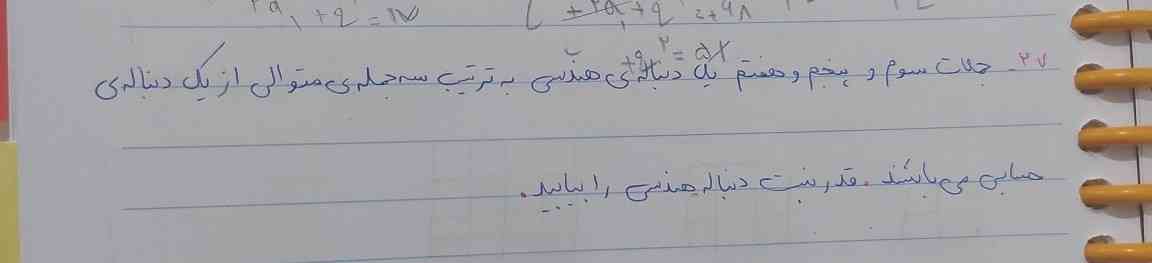 ۲۷- جملات سوم و پنجم و هفتم یک دنباله‌ی هندسی به ترتیب سه جمله‌ی متوالی از یک دنباله‌ی
حسابی می‌باشند. قدر نسبت دنباله هندسی را بیابید.